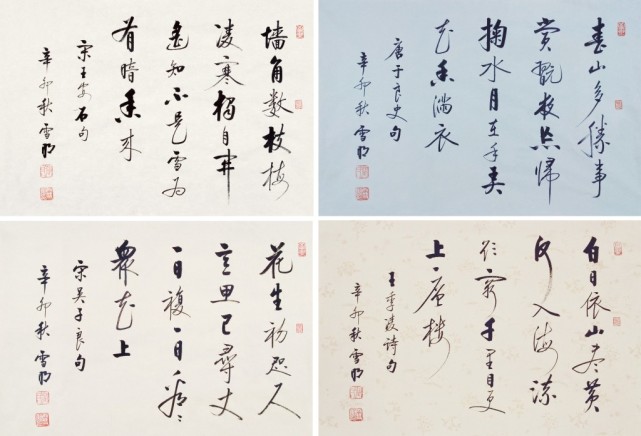 墙角数枝梅
凌寒独自开
遥知不是雪为
有暗香来
宋王安石句
辛卯秋雪
春山多勝事
賞翫夜忘歸
掬水月在手弄
花香满衣
唐于良史句
辛卯秋雪
花生初咫尺
意思已尋丈
一日複一日看看
衆花上
宋吴子良句
辛卯秋雪
白日依山尽黄
河入海流
欲穷千里目更
上一层楼
王季凌诗句
辛卯秋雪